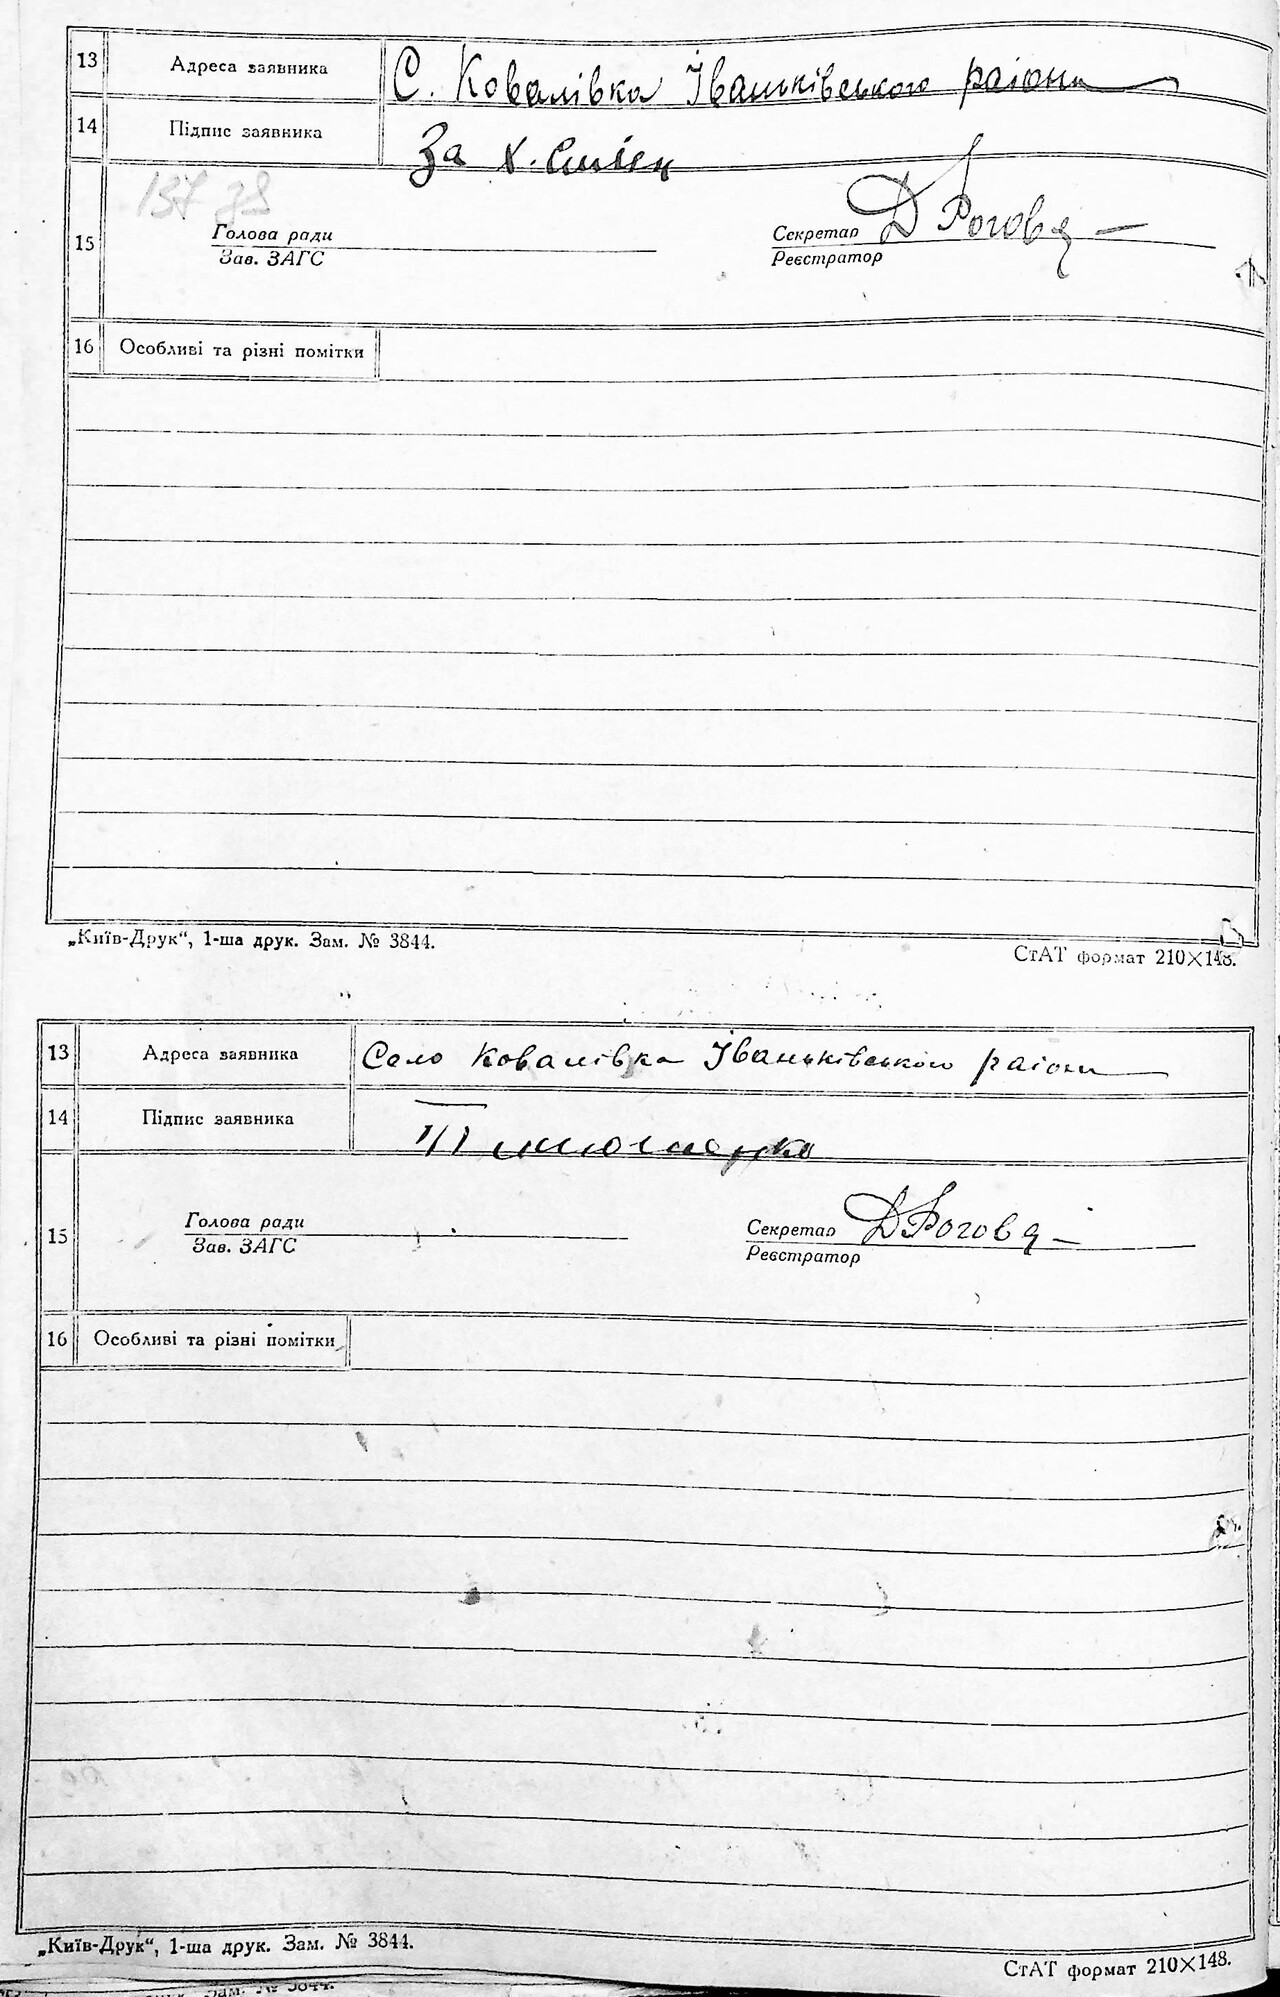 13 Адреса заявника С. Ковалівка Іваньківського району
14 Підпис заявника За Х.
137
15 Голова ради Секретар Д Рогова
Зав. ЗАГС Реєстратор
16 Особливі та різні помітки
„Київ-Друк“, 1-ша друк. Зам. № 3844.
СтАТ формат 210×148.
13 Адреса заявника Село Ковалівка Іваньківського району
14 Підпис заявника Тимошенко
15 Голова ради Секретар Д Рогова
Зав. ЗАГС Реєстратор
16 Особливі та різні помітки
„Київ-Друк“, 1-ша друк. Зам. № 3844.
СтАТ формат 210×148.